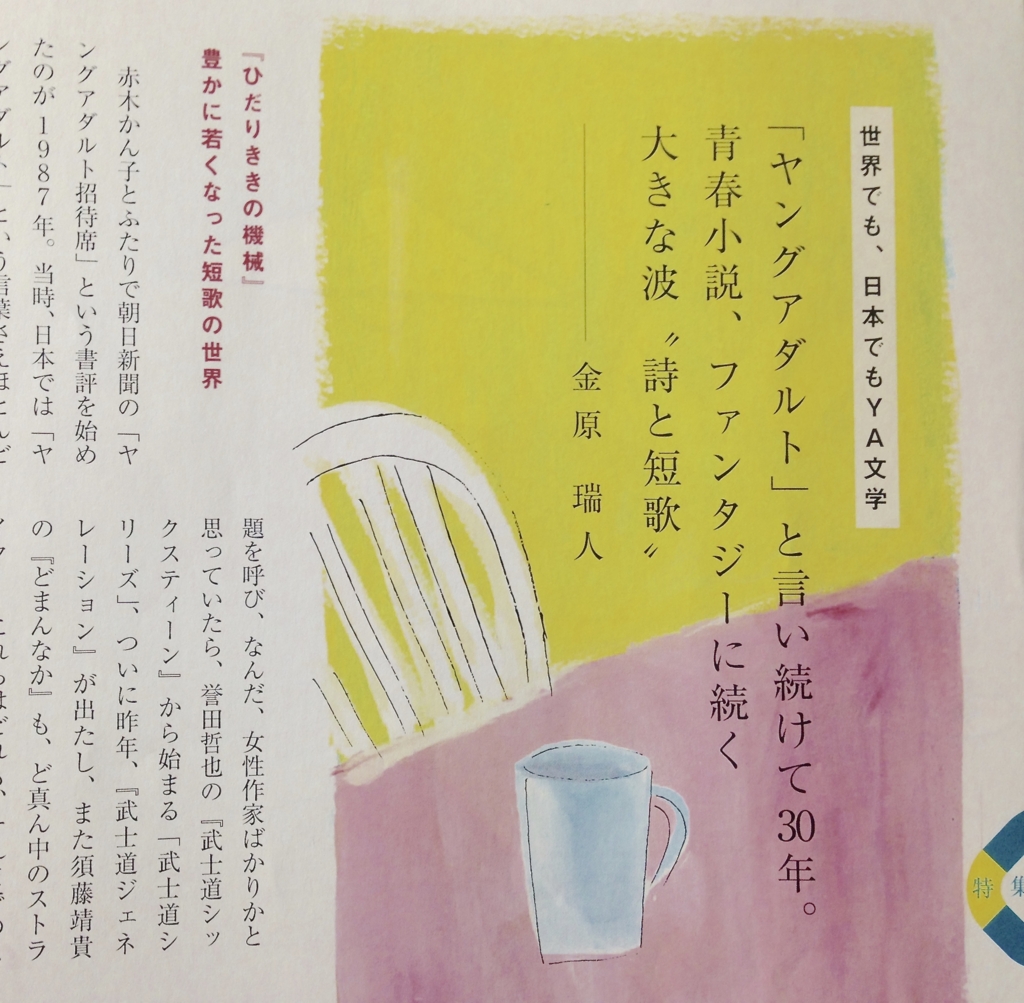 世界でも、日本でもYA文学
「ヤングアダルト」と言い続けて30年。
青春小説、ファンタジーに続く
大きな波〝詩と短歌〟
金原 瑞人
『ひだりききの機械』
豊かに若くなった短歌の世界
赤木かん子とふたりで朝日新聞の「ヤ
ングアダルト招待席」という書評を始め
たのが1987年。当時、日本では「ヤ
題を呼び、なんだ、女性作家ばかりかと
思っていたら、誉田哲也の『武士道シッ
クスティーン』から始まる「武士道シ
リーズ」、ついに昨年、『武士道ジェネ
レーション』が出たし、また須藤靖貴
の『どまんなか』も、ど真ん中のストラ
特集